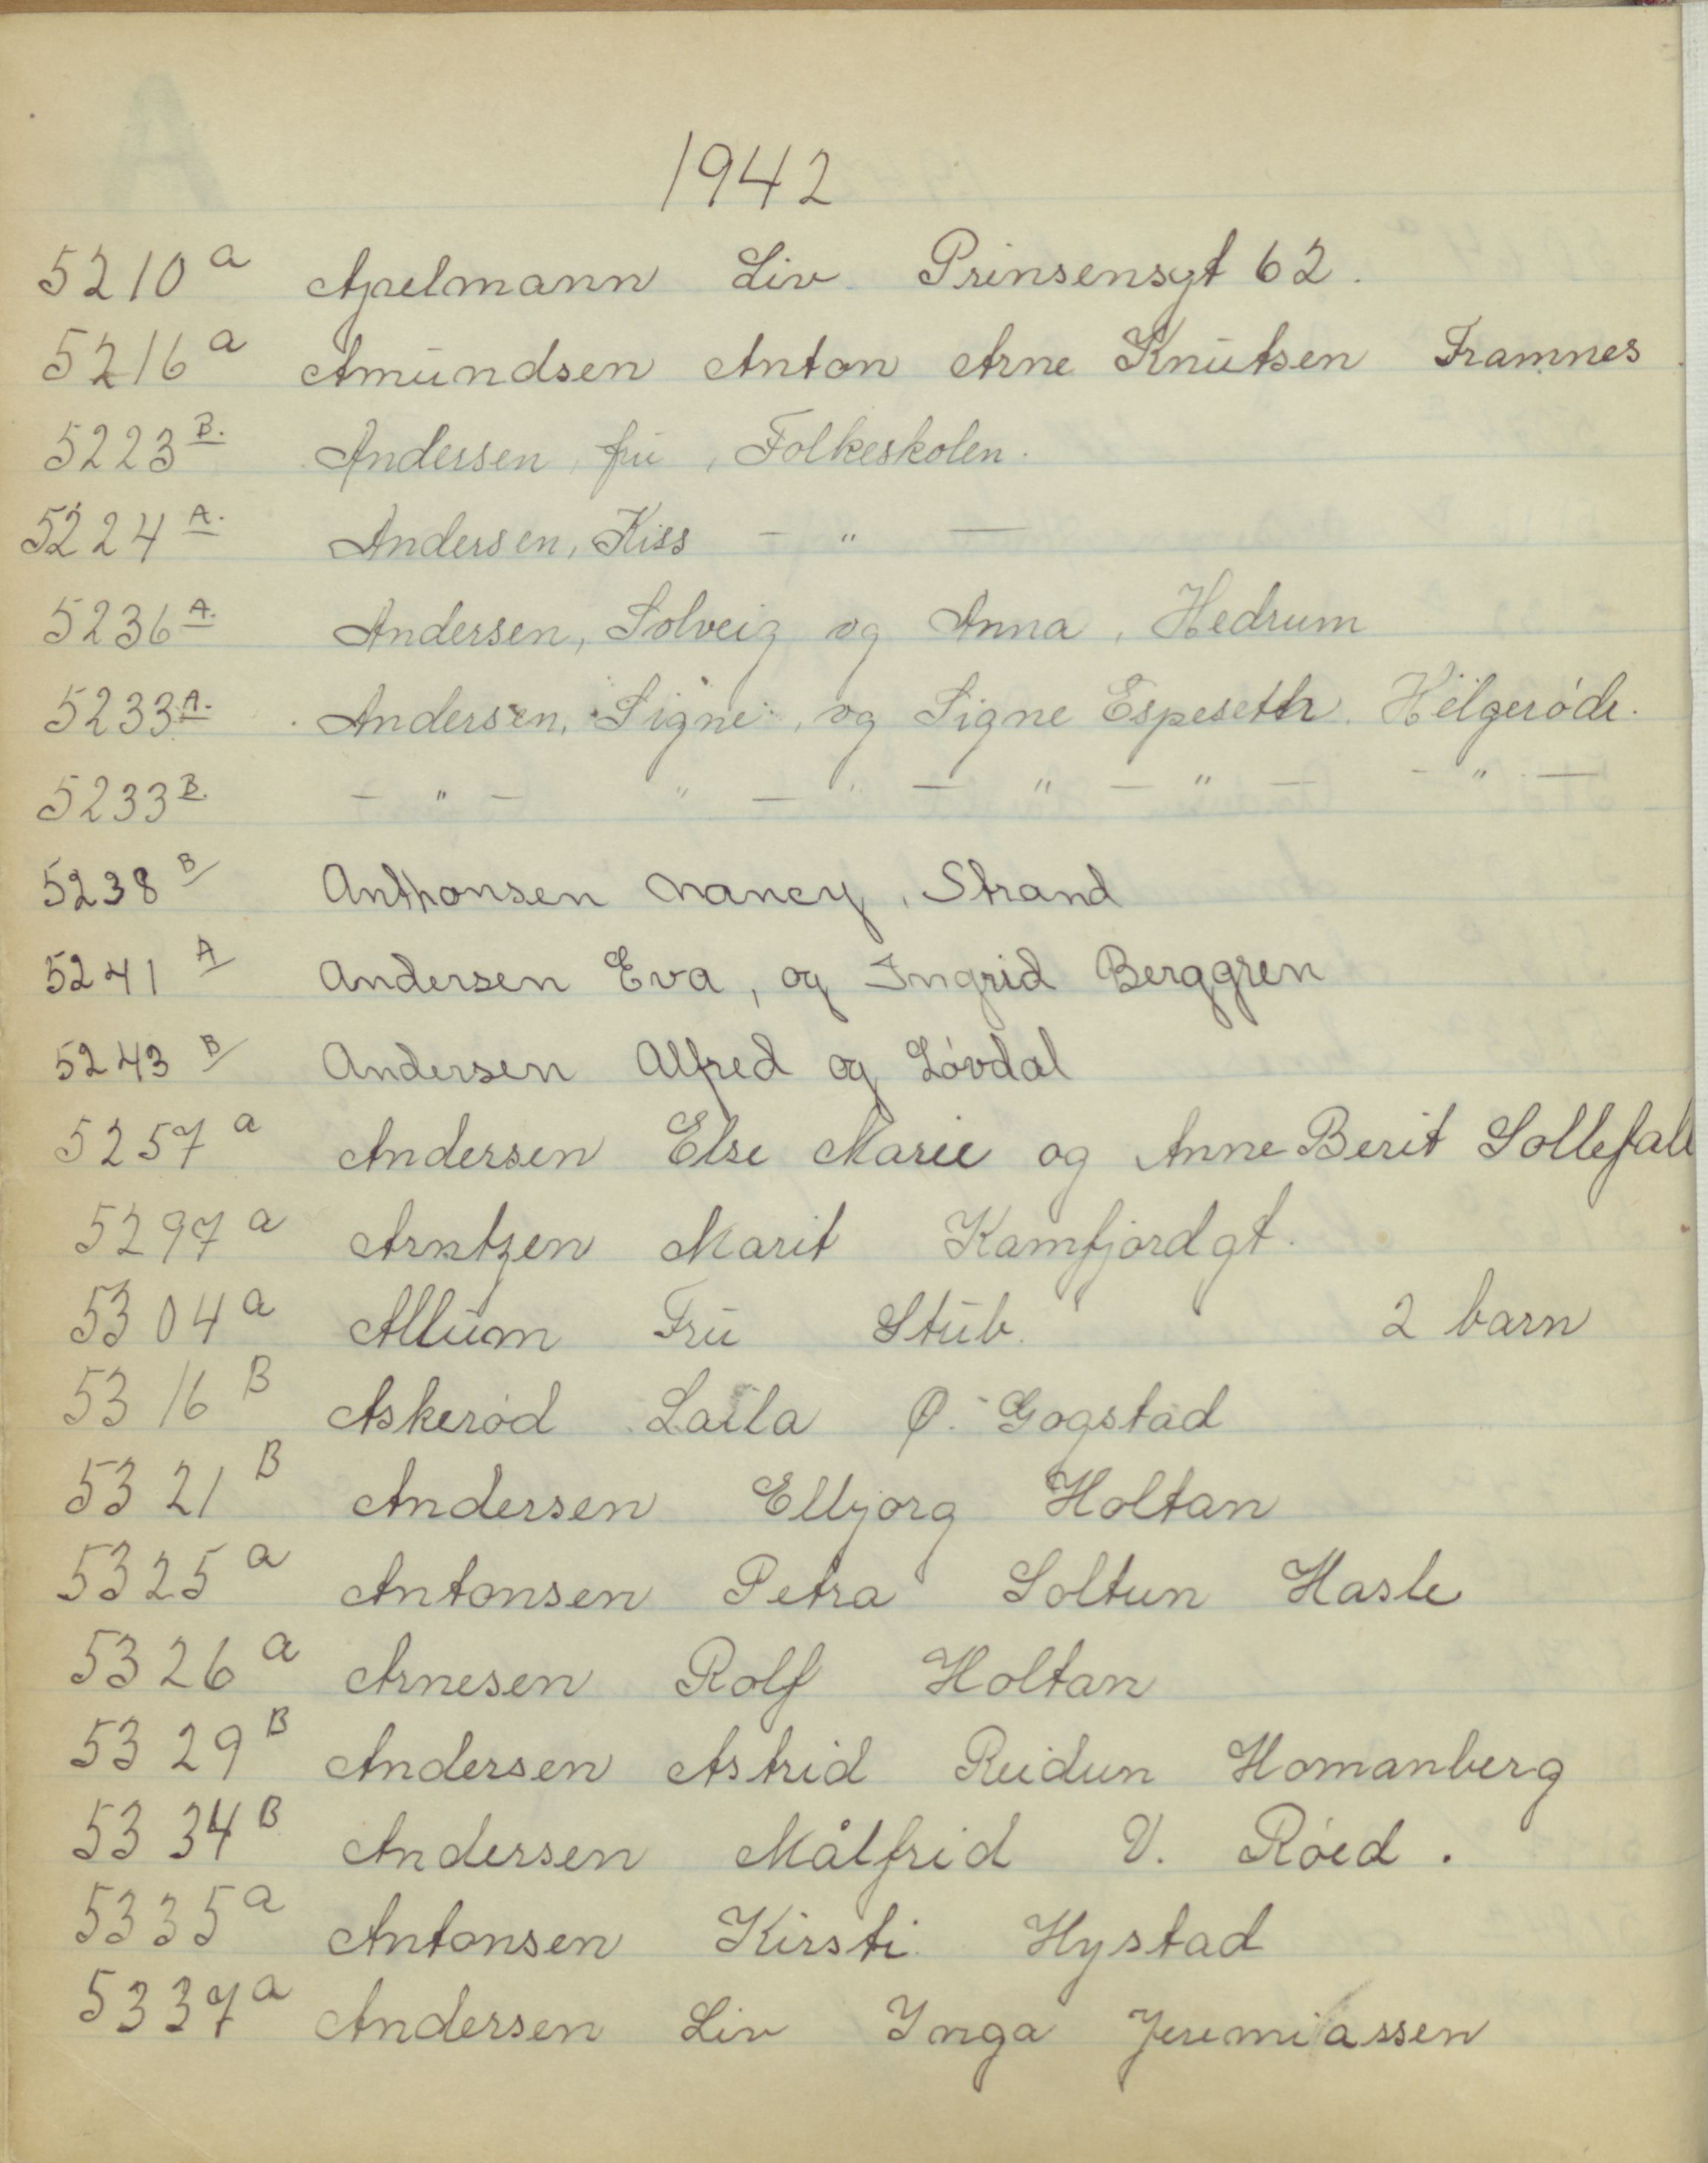 1942
5210 a Apelmann Liv Prinsensgt 62.
5216 a Amundsen Anton Arne Knutsen Framnes.
5223 B. Andersen, fru, Folkeskolen.
5224 A. Andersen, Kiss - " -
5236 A. Andersen, Solveig og Anna, Hedrum
5233 A. Andersen, Signe, og Signe Espeseth. Helgeröde.
5233 B. - " - " - " - " - " - - " -
5238 B/ Anthonsen Nancy, Strand
5241 A/ Andersen Eva, og Ingrid Berggren
5243 B/ Andersen Alfred og Lövdal
5257 a Andersen Else Marie og Anne Berit Sollefall
5297 a Arntzen Marit Kamfjordgt.
5304 a Allum Fru Stub. 2 barn
5316 B Askeröd Laila Ø. Gogstad
5321 B Andersen Elbjorg Holtan
5325 a Antonsen Petra Soltun Hasle
5326 a Arnesen Rolf Holtan
5329 B Andersen Astrid Reidun Homanberg
5334 B Andersen Målfrid V. Röed.
5335 a Antonsen Kirsti Hystad
5337 a Andersen Liv Ynga Jeremiassen